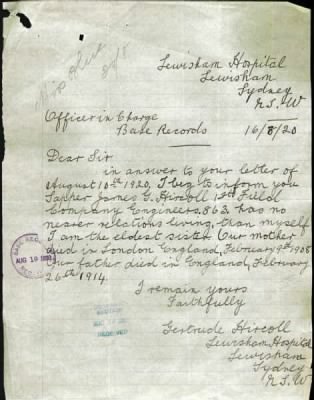 Lewisham Hospital
Lewisham
Sydney
N.S.W
Officer in Charge
Base Records 16/8/20
Dear Sir
in answer to your letter of
August 10th 1920, I beg to inform you
Sapper James G. Hircoll 12th Field
Company Engineers, 863, has no
nearer relations living, than myself
I am the eldest sister Our mother
died in London England, February 9th 1908
Our father died in England, February
26th 1914.
I remain yours
Faithfully
Gertrude Hircoll
Lewisham Hospital
Lewisham
Sydney
N.S.W
BASE REC
AUG 19 1920
RECEIVED